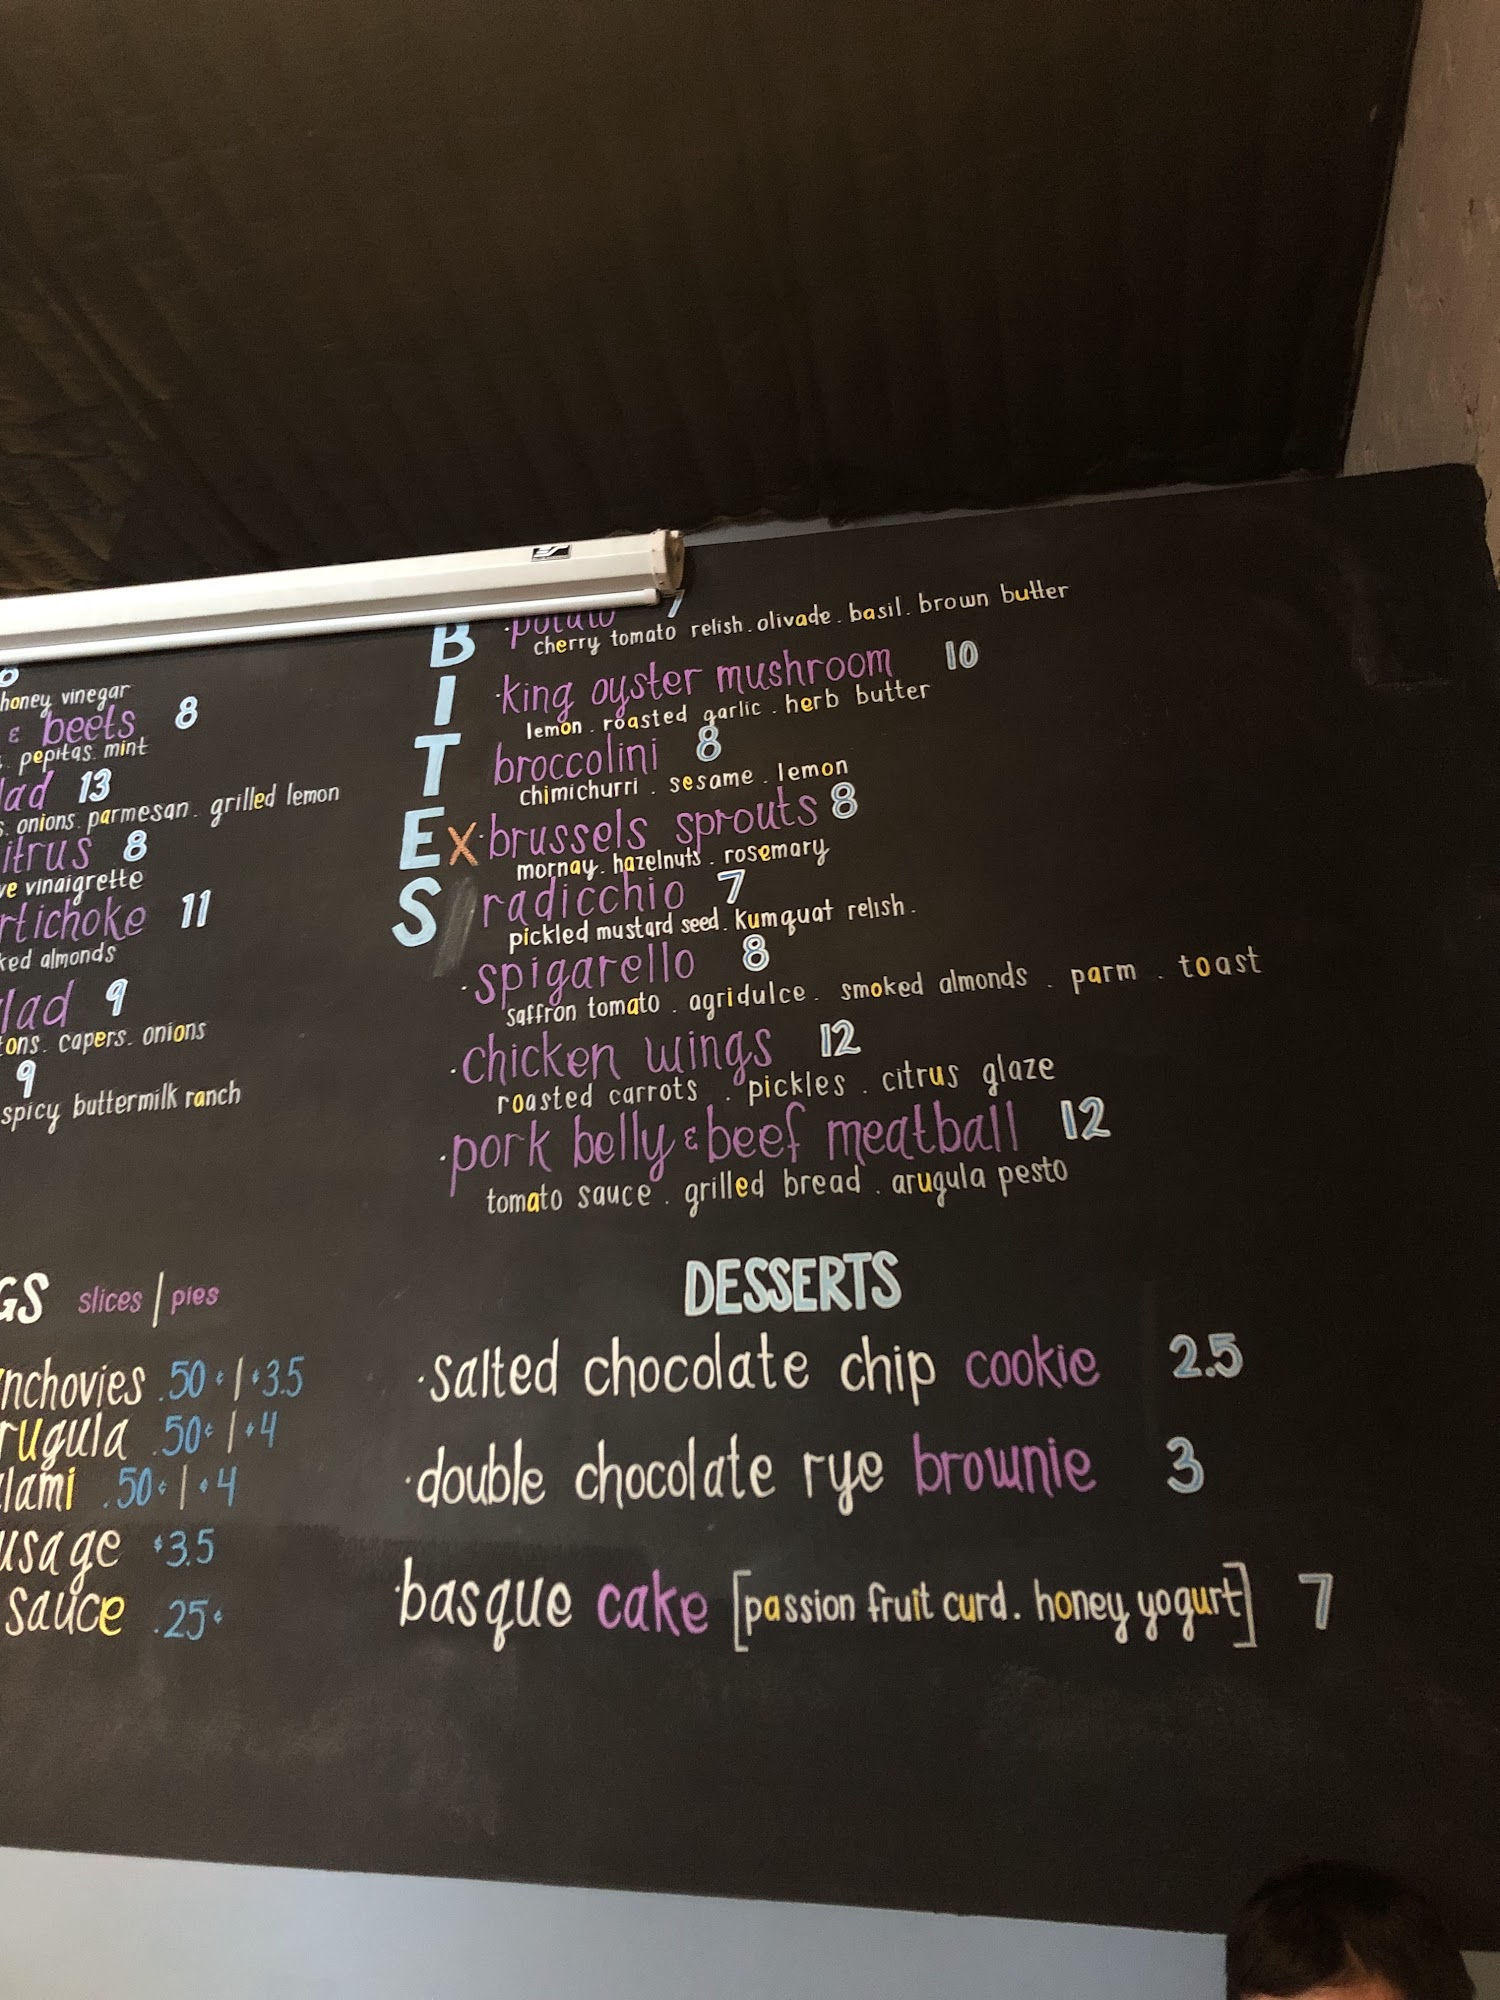 honey vinegar
& beets 8
pepitas. mint
13
onions. parmesan. grilled lemon
8
vinaigrette
11
almonds
9
capers. onions
9
spicy buttermilk ranch
BITES
·potato 7
cherry tomato relish. olivade. basil. brown butter
·king oyster mushroom 10
lemon. roasted garlic. herb butter
broccolini 8
chimichurri. sesame. lemon
X·brussels sprouts 8
mornay. hazelnuts. rosemary
radicchio 7
pickled mustard seed. kumquat relish.
·spigarello 8
saffron tomato. agridulce. smoked almonds. parm. toast
·chicken wings 12
roasted carrots. pickles. citrus glaze
·pork belly & beef meatball 12
tomato sauce. grilled bread. arugula pesto
slices | pies
nchovies .50¢ | $3.5
rugula .50¢ | $4
lami .50¢ | $4
usage $3.5
sauce .25¢
DESSERTS
·salted chocolate chip cookie 2.5
·double chocolate rye brownie 3
·basque cake [passion fruit curd. honey yogurt] 7